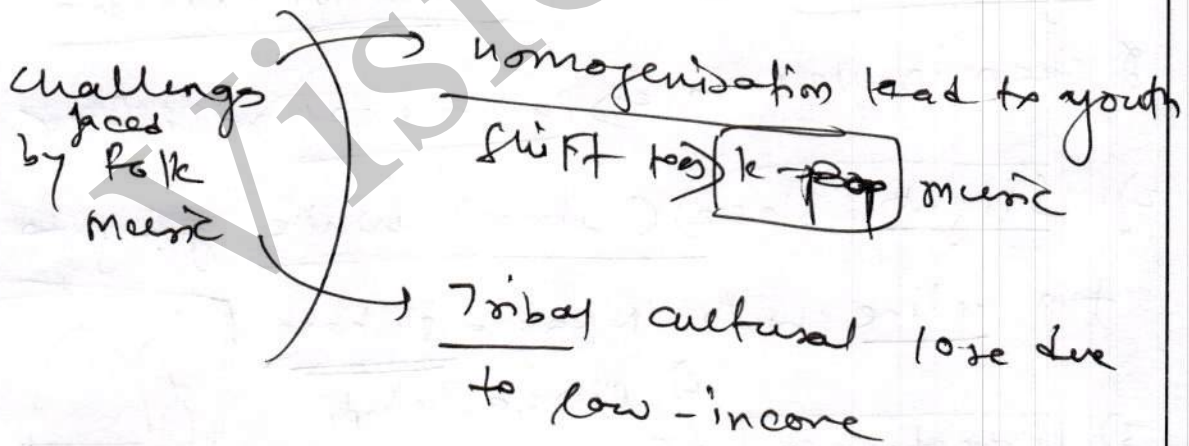 challenges
faced
by folk
music
Homogenisation lead to youth
shift to k-pop music
Tribal cultural lose due
to low-income
Visi